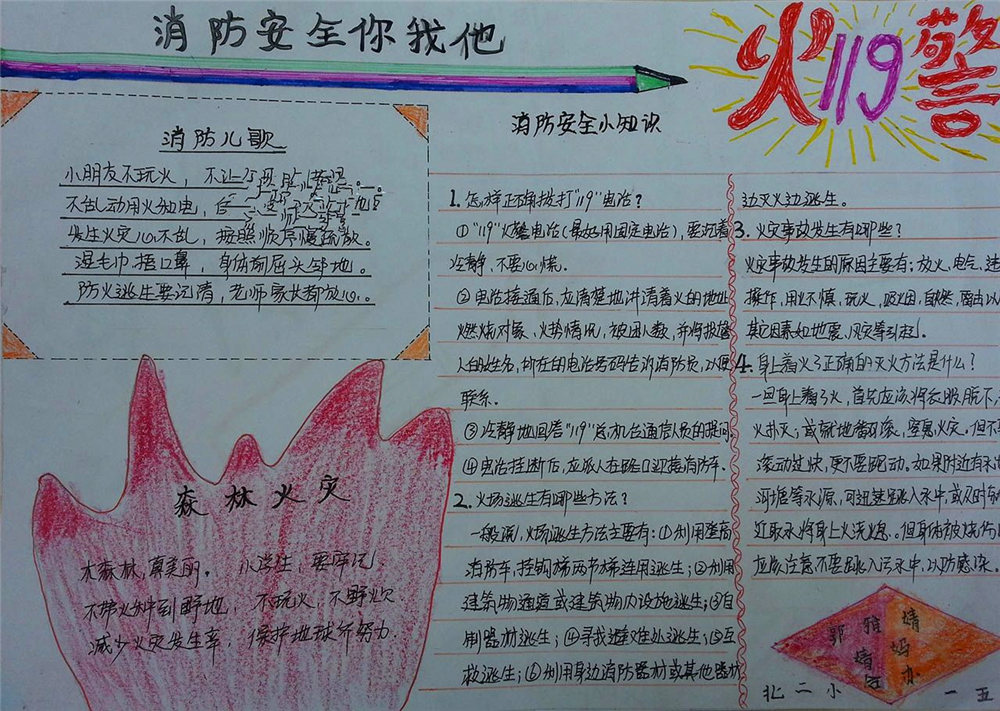 消防安全你我他
火119警
消防儿歌
小朋友不玩火，不让
不乱动用火和电，
发生火灾心不乱，按照顺序慢疏散。
湿毛巾捂口鼻，身体前屈头邻地。
防火逃生要记清，老师家长都放心。
森林火灾
木森林，真美丽。小学生，要牢记
不带火种到野地，不玩火，不野炊
减少火灾发生率，保护地球齐努力.
消防安全小知识
1.怎样正确拨打"119"电话？
①"119"火警电话(最好用固定电话)，要沉着
冷静，不要心慌.
②电话接通后，应清楚地讲清着火的地址
燃烧对象、火势情况，被困人数，并将报警
人的姓名，所在的电话号码告诉消防员，以便
联系。
③冷静地回答"119"总机台通信员的提问.
④电话挂断后，应派人在路口迎接消防车.
2.火场逃生有哪些方法？
一般说，火场逃生方法主要有：①利用登高
消防车，挂钩梯两节梯连用逃生；②利用
建筑物通道或建筑物内设施逃生；③自
制器材逃生；④寻找避难处逃生；⑤互
救逃生；⑥利用身边消防器材或其他器材
边灭火边逃生。
3.火灾事故发生有哪些？
火灾事故发生的原因主要有；放火，电气、违
操作，用火不慎，玩火，吸烟，自燃，雷击以
其它因素如地震，风灾等引起.
4.身上着火了正确的灭火方法是什么？
一旦身上着了火，首先应该将衣服脱下，
火扑灭；或就地翻滚，窒息火灾，但不
滚动过快，更不要跑动。如果附近有水
河塘等水源，可迅速跳入水中，或及时
近取水将身上火浇熄.。但身体被烧伤
应该注意不要跳入污水中，以防感染。
郭雅婧
婧妈
办
北二小 一五